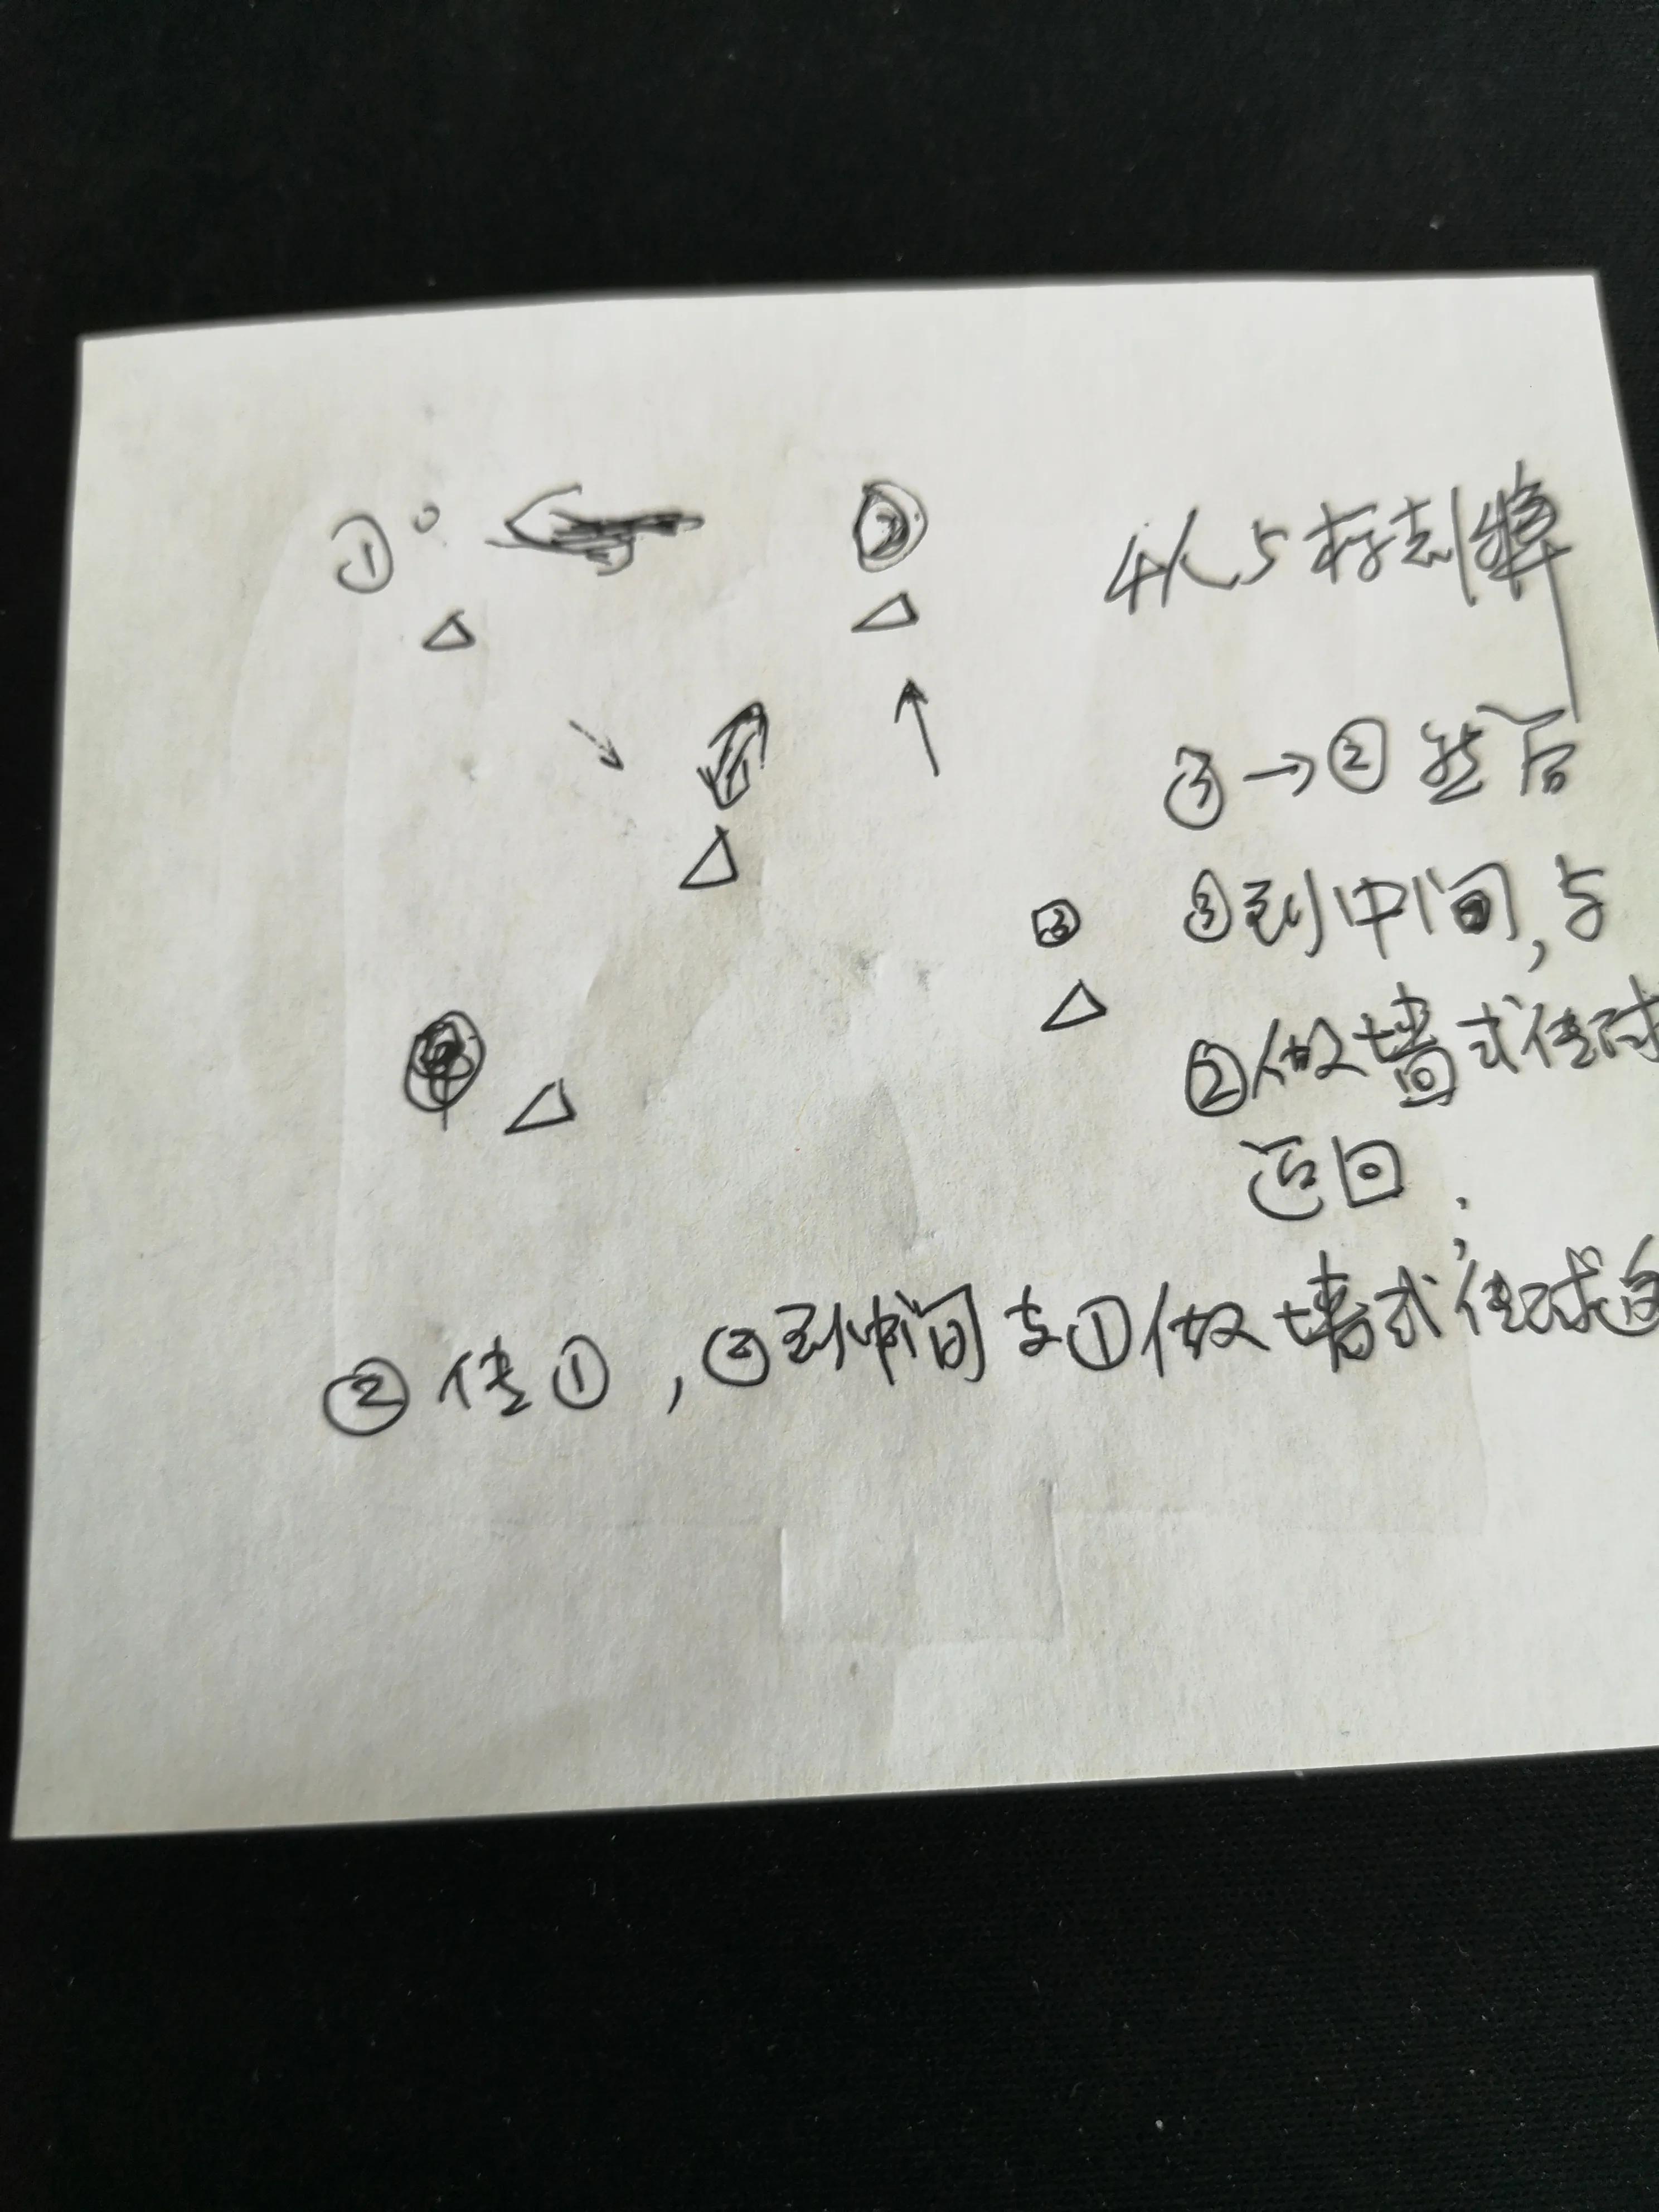 ①
②
4人5标志锥
③→②然后
③
③到中间,与
②做墙式传球
返回.
②传①,②到中间与①做墙式传球返